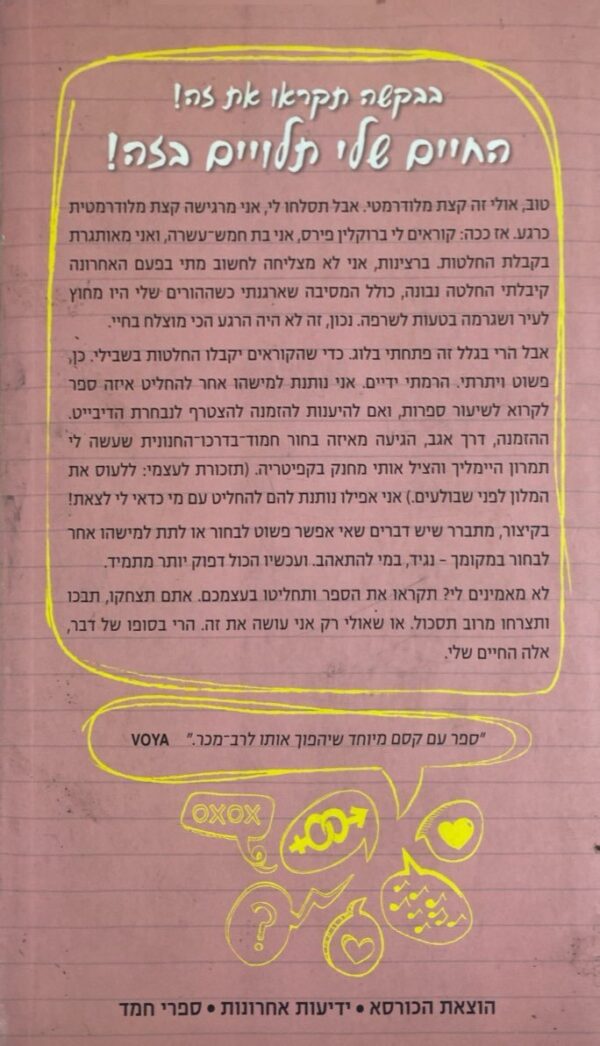 בבקשה תקראו את זה!
החיים שלי תלויים בזה!
טוב, אולי זה קצת מלודרמטי. אבל תסלחו לי, אני מרגישה קצת מלודרמטית
כרגע. אז ככה: קוראים לי ברוקלין פירס, אני בת חמש־עשרה, ואני מאותגרת
בקבלת החלטות. ברצינות, אני לא מצליחה לחשוב מתי בפעם האחרונה
קיבלתי החלטה נבונה, כולל המסיבה שארגנתי כשההורים שלי היו מחוץ
לעיר ושגרמה בטעות לשרפה. נכון, זה לא היה הרגע הכי מוצלח בחיי.
אבל הרי בגלל זה פתחתי בלוג. כדי שהקוראים יקבלו החלטות בשבילי. כן,
פשוט ויתרתי. הרמתי ידיים. אני נותנת למישהו אחר להחליט איזה ספר
לקרוא לשיעור ספרות, ואם להיענות להזמנה להצטרף לנבחרת הדיבייט.
ההזמנה, דרך אגב, הגיעה מאיזה בחור חמוד־בדרכו־החנונית שעשה לי
תמרון היימליך והציל אותי מחנק בקפיטריה. (תזכורת לעצמי: ללעוס את
המלון לפני שבולעים.) אני אפילו נותנת להם להחליט עם מי כדאי לי לצאת!
בקיצור, מתברר שיש דברים שאי אפשר פשוט לבחור או לתת למישהו אחר
לבחור במקומך – נגיד, במי להתאהב. ועכשיו הכול דפוק יותר מתמיד.
לא מאמינים לי? תקראו את הספר ותחליטו בעצמכם. אתם תצחקו, תבכו
ותצרחו מרוב תסכול. או שאולי רק אני עושה את זה. הרי בסופו של דבר,
אלה החיים שלי.
"ספר עם קסם מיוחד שיהפוך אותו לרב־מכר." VOYA
OXOX
?
הוצאת הכורסא • ידיעות אחרונות • ספרי חמד